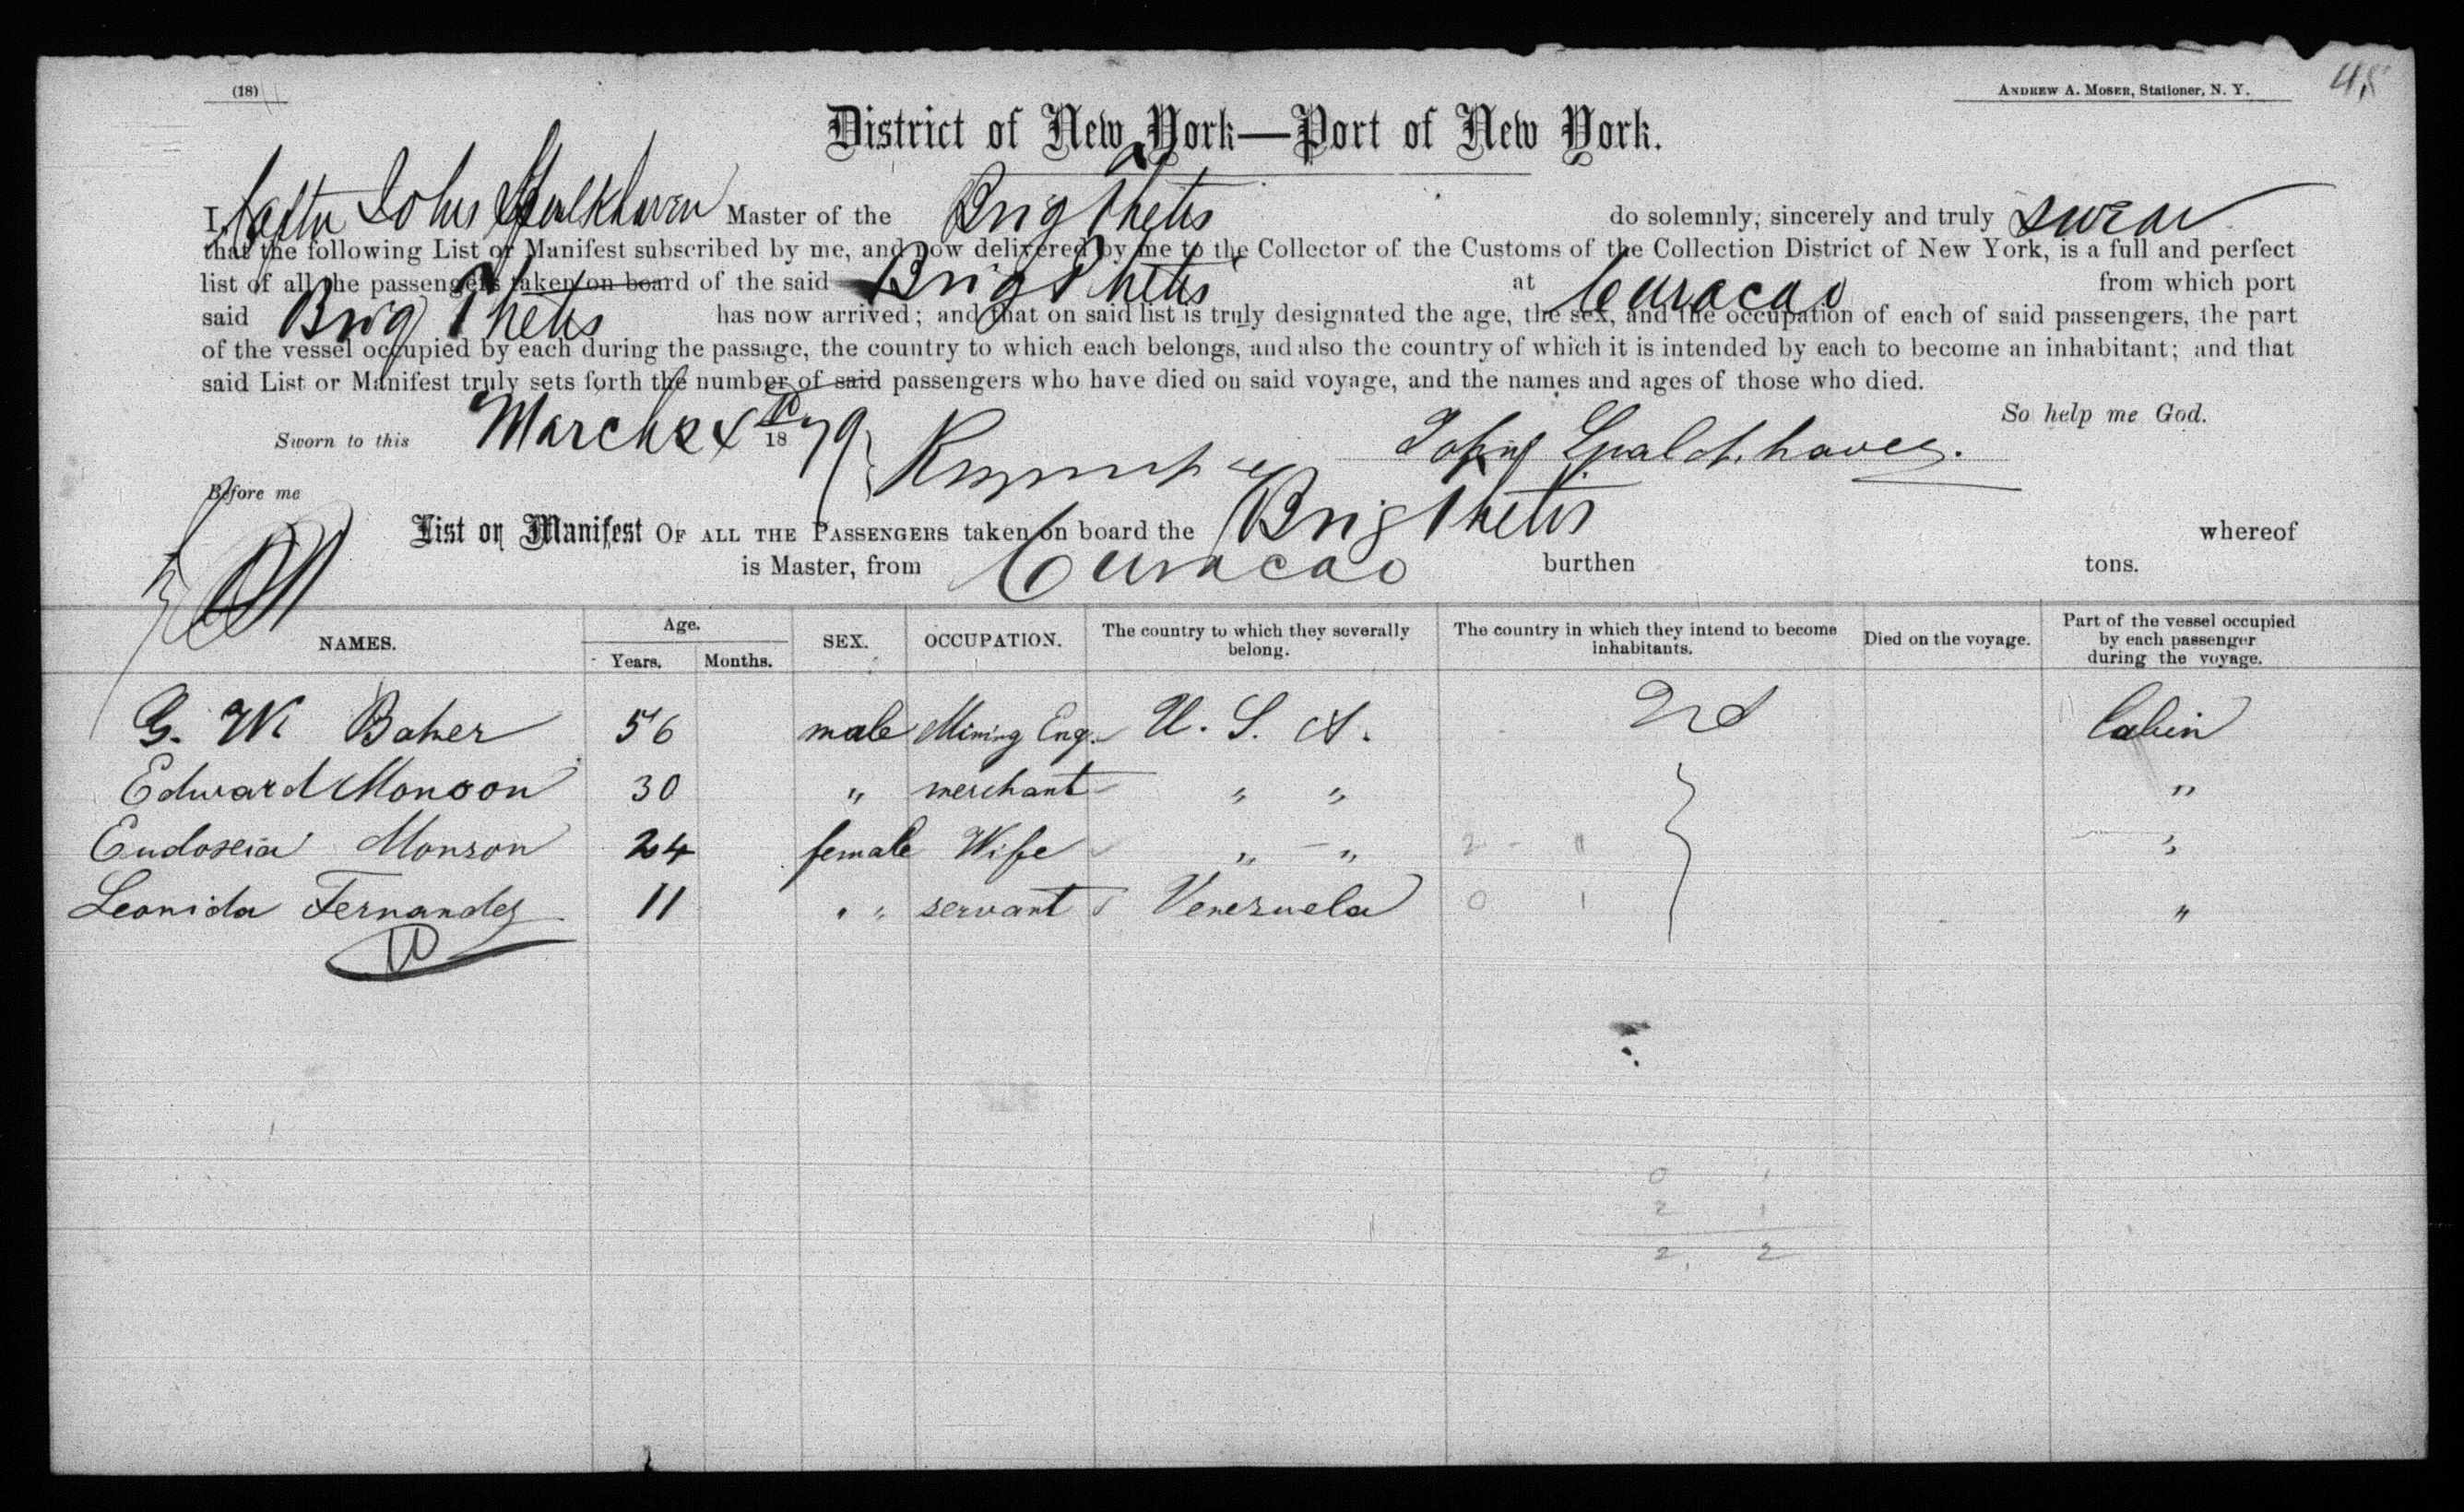 (18)
ANDREW A. MOSER, Stationer, N. Y.
District of New York—Port of New York.
I, John Master of the Brig Thetis do solemnly, sincerely and truly swear
that the following List or Manifest subscribed by me, and now delivered by me to the Collector of the Customs of the Collection District of New York, is a full and perfect
list of all the passengers taken on board of the said Brig Thetis at Curacao from which port
said Brig Thetis has now arrived; and that on said list is truly designated the age, the sex, and the occupation of each of said passengers, the part
of the vessel occupied by each during the passage, the country to which each belongs, and also the country of which it is intended by each to become an inhabitant; and that
said List or Manifest truly sets forth the number of said passengers who have died on said voyage, and the names and ages of those who died.
So help me God.
Sworn to this March 1879
John
Before me
List or Manifest OF ALL THE PASSENGERS taken on board the Brig Thetis whereof
is Master, from Curacao burthen tons.
NAMES. Age. Years. Months. SEX. OCCUPATION. The country to which they severally belong. The country in which they intend to become inhabitants. Died on the voyage. Part of the vessel occupied by each passenger during the voyage.
G. W. Baker 56 male Mining Eng. U. S. A. Cabin
Edward Monson 30 " merchant " " "
Eudoxia Monson 24 female Wife " " 2 "
Leonida Fernandez 11 " " servant Venezuela 0 1 "
0 1
2 1
2 2